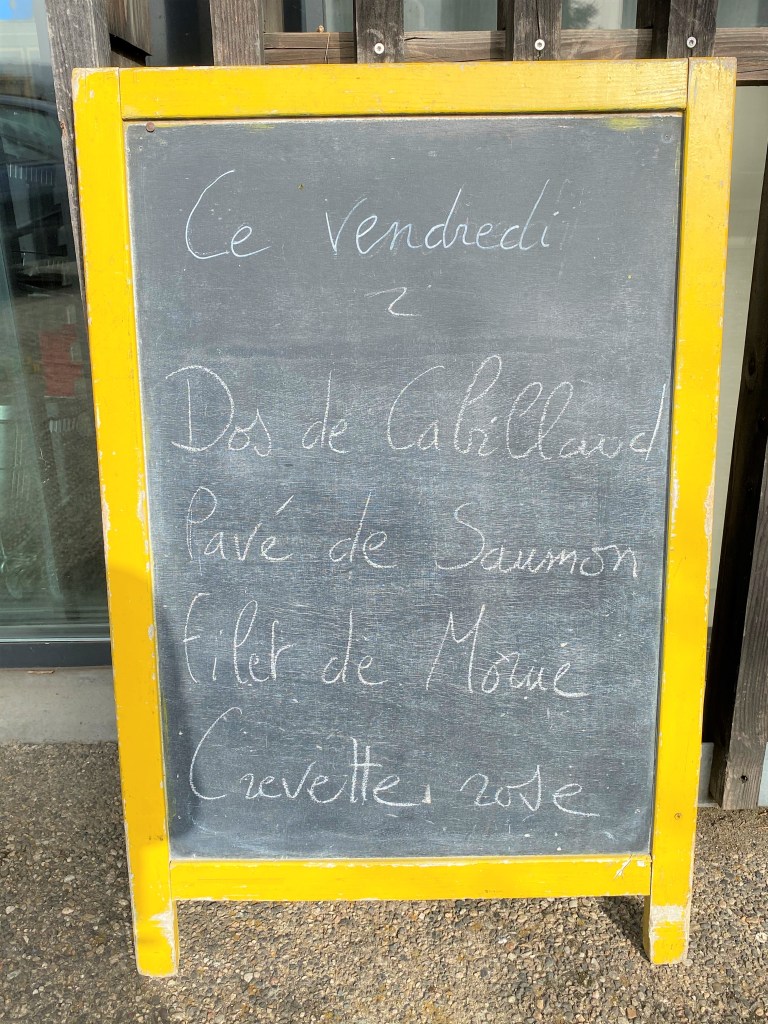 Ce vendredi
Dos de Cabillaud
Pavé de Saumon
Filet de Morue
Crevette rose